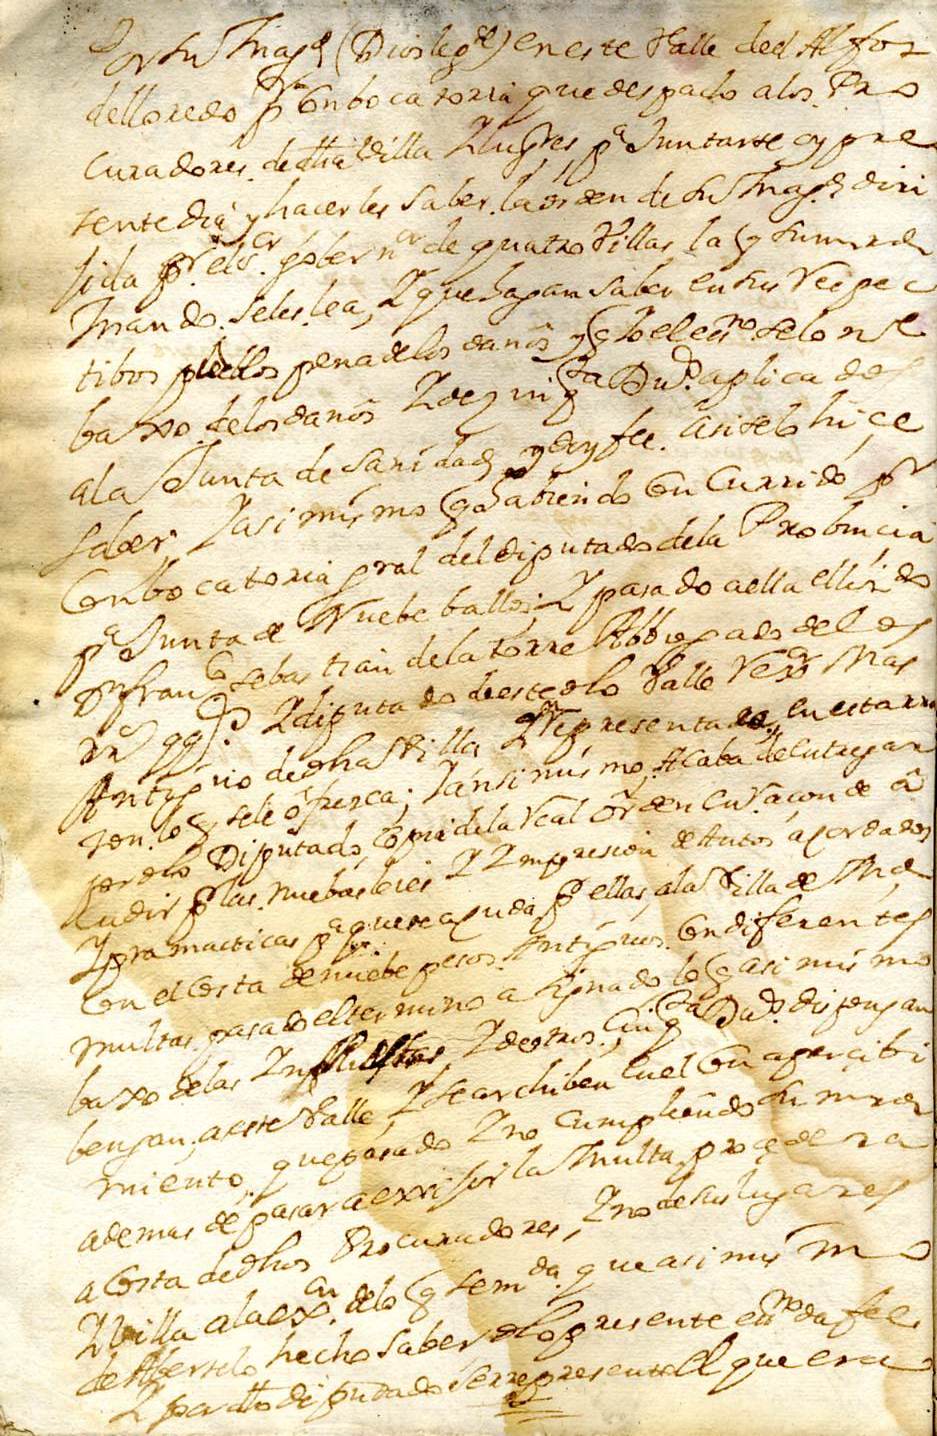 Por su Mag.d (Dios le g.de) en este Valle de el Alfoz
de lloredo p.r Conbocatoria que despacho a los Pro
curadores de dha Villa Y lugres, p.a Juntarse oy pre
sente dia y hacerles saber la orden de Su Mag.d diri
jida p.r el s.r gobern.or de quatro Villas la q Su mrd
Mando se les lea, Y que hagan saber en sus Respec
tibos pueblos pena de los daños y q Yo el ess.no
baxo de los daños Y de aplica des
a la Junta de Sanidad, y doy fee. asi se lo hice
saber. Y asi mismo q habiendo Concurrido p.r
Conbocatoria gral del diputado de la Probincia
p.a Junta de Nuebe balles, Y pasado a ella el lizdo
D.n Fran.co Sebastian de la Torre Abbogado de los
Y diputado de este dho Valle Mas
Antiguo de dha Villa, Y Representado en esta
son lo q se le ofrezca; Y ansi mismo, Acaba de entregar
por dho Diputado, Copia de la Real orden en Raçon de a
cudir p.r las nuebas leies Y Ympresion de Autos acordados
Y pramacticas p.a que se acuda p.r ellas, a la Villa de Md
Con el Costa de nuebe pesos Antiguos. Con diferentes
multas, pasado el termino asignado lo q asi mismo
baxo de las Y de otros dispongan
bengan, a este Valle, Y se archiben en el Con apercibi
miento, que pasado Y no Cumpliendo Su mrd
ademas de pasar a exsijir la Multa, procedera
a Costa de dhos Procuradores, Y no de sus lugares
Y Villa a la ex.cn de lo q se m.da que asi mismo
de Aberselo hecho saber dho presente ess.no da fee
Y por dho diputado se rrepresento el que era